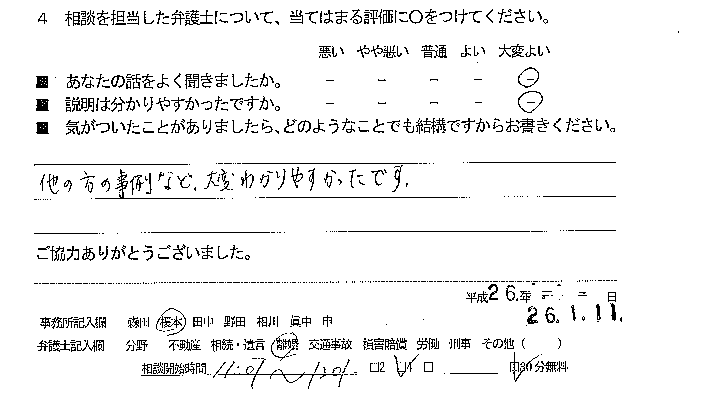 4 相談を担当した弁護士について、当てはまる評価に○をつけてください。
悪い やや悪い 普通 よい 大変よい
■ あなたの話をよく聞きましたか。 － － － － －
■ 説明は分かりやすかったですか。 － － － － －
■ 気がついたことがありましたら、どのようなことでも結構ですからお書きください。
他の方の事例など、大変わかりやすかったです。
ご協力ありがとうございました。
平成26.年 日
26.1.11.
事務所記入欄 榎本 田中 野田 相川 眞中 申
弁護士記入欄 分野 不動産 相続・遺言 離婚 交通事故 損害賠償 労働 刑事 その他（ ）
相談開始時間 11:07～ □2 □1 □ □30分無料